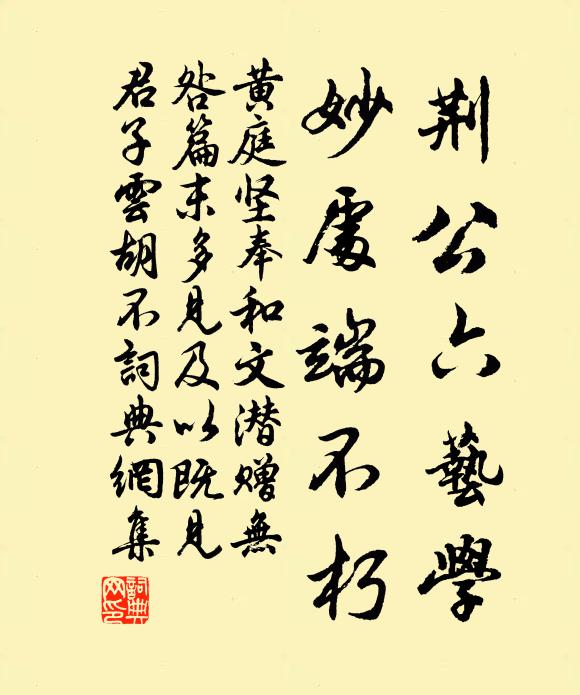 荆公六藝學
妙處端不朽
黄庭坚奉和文潜赠無
咎篇末多見及以既見
君子雲胡不詞典網集
詞典
网印